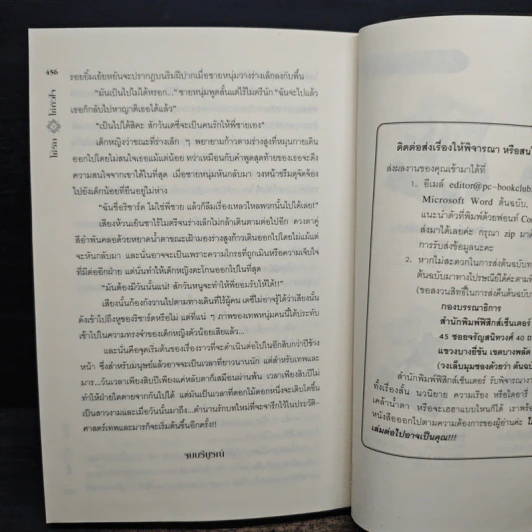 456
รอยยิ้มเย้ยหยันจะปรากฏบนริมฝีปากเมื่อชายหนุ่มวางร่างเล็กลงกับพื้น
"มันเป็นไปไม่ได้หรอก..." ชายหนุ่มพูดสั้นแต่ไร้ไมตรีนัก "ฉันจะไปแล้ว
เธอก็กลับไปหาญาติเธอได้แล้ว"
"เป็นไปได้สิคะ สักวันเดซี่จะเป็นคนรักให้พี่ชายเอง"
เด็กหญิงว่าขณะที่ร่างเล็ก ๆ พยายามก้าวตามร่างสูงที่หมุนกายเดิน
ออกไปโดยไม่สนใจเธอแม้แต่น้อย ทว่าเหมือนกับคำพูดสุดท้ายของเธอจะดึง
ความสนใจจากเขาได้ในที่สุด เมื่อชายหนุ่มหันกลับมา วงหน้าขรึมดุจจ้อง
ไปยังเด็กน้อยที่ยืนอยู่ไม่ห่าง
"ฉันชื่อริชาร์ต ไม่ใช่พี่ชาย แล้วก็ลืมเรื่องเหลวไหลพวกนั้นไปได้เลย!"
เสียงห้วนเย็นชาไร้ไมตรีจนร่างเล็กไม่กล้าเดินตามต่อไปอีก ดวงตาคู่
สีอำพันคลอด้วยหยาดน้ำตาขณะเฝ้ามองร่างสูงก้าวเดินออกไปโดยไม่แม้แต่
จะหันกลับมา และนั่นอาจจะเป็นเพราะความโกรธที่ถูกเมินหรือความเจ็บใจ
ที่มีต่ออีกฝ่าย แต่นั่นทำให้เด็กหญิงตะโกนออกไปในที่สุด
"มันต้องมีวันนั้นแน่! สักวันหนูจะทำให้พี่ยอมรับให้ได้!!"
เสียงนั้นก้องกังวานไปตามทางเดินที่ไร้ผู้คน เดซี่ไม่อาจรู้ได้ว่าเสียงนั้น
ดังเข้าไปถึงหูของริชาร์ตหรือไม่ แต่ที่แน่ ๆ ภาพของเทพหนุ่มคนนี้ได้ประทับ
เข้าไปในความทรงจำของเด็กหญิงตัวน้อยเสียแล้ว...
และนั่นคือจุดเริ่มต้นของเรื่องราวที่จะดำเนินต่อไปในอีกสิบกว่าปีข้าง
หน้า ซึ่งสำหรับมนุษย์แล้วอาจจะเป็นเวลาที่ยาวนานนัก แต่สำหรับเทพและ
มาร...วันเวลาเพียงสิบปีเพียงแค่หลับตาก็เสมือนผ่านพ้น เวลาเพียงสิบปีไม่
ทำให้ฝ่ายใดตายจากกันไปได้ แต่มันเป็นเวลาที่ดอกไม้ดอกหนึ่งจะเติบโตขึ้น
เป็นสาวงามและเมื่อวันนั้นมาถึง...ตำนานรักบทใหม่ที่จะจารึกไว้ในประวัติ-
ศาสตร์เทพและมารก็จะเริ่มต้นขึ้นอีกครั้ง!!
จบบริบูรณ์
ติดต่อส่งเรื่องให้พิจารณา หรือสน
ส่งผลงานของคุณเข้ามาได้ที่
1. อีเมล์ editor@pc-bookclub.
Microsoft Word ต้นฉบับ,
แนะนำตัวที่พิมพ์ด้วยฟอนต์ Cor
ส่งมาได้เลยค่ะ กรุณา zip มาด้
การรับส่งข้อมูลนะคะ
2. หากไม่สะดวกในการส่งต้นฉบับทา
ต้นฉบับมาทางไปรษณีย์ได้ค่ะตามที่
(ขอสงวนสิทธิ์ในการส่งคืนต้นฉบับ
กองบรรณาธิการ
สำนักพิมพ์ฟิสิกส์เซ็นเตอร์
45 ซอยจรัญสนิทวงศ์ 40 ถ
แขวงบางยี่ขัน เขตบางพลัด
(วงเล็บมุมซองด้วยว่า ต้นฉบั
สำนักพิมพ์ฟิสิกส์เซ็นเตอร์ รับพิจารณางา
ทั้งเรื่องสั้น นวนิยาย ความเรียง หรือไดอารี่
เคล้าน้ำตา หรือจะเฮฮาแบบไหนก็ได้ เราพร้อ
หนังสือออกไปตามความต้องการของผู้อ่านค่ะ
เล่มต่อไปอาจเป็นคุณ!!!